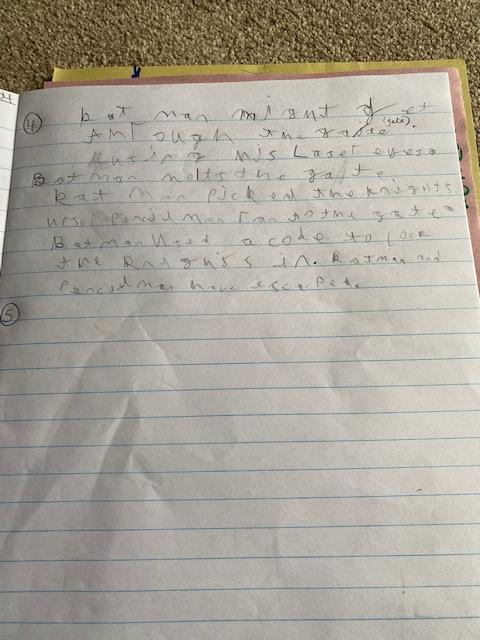 4
bat man mignt get
(gate)
the gaite.
using his Laser eyes
Batman melts the gaite.
bat man Picked the knights
nose. Pencil man ran to the gate
Batman Used a code to lock
the knights in. Batman and
Pencil man have escaped.
5